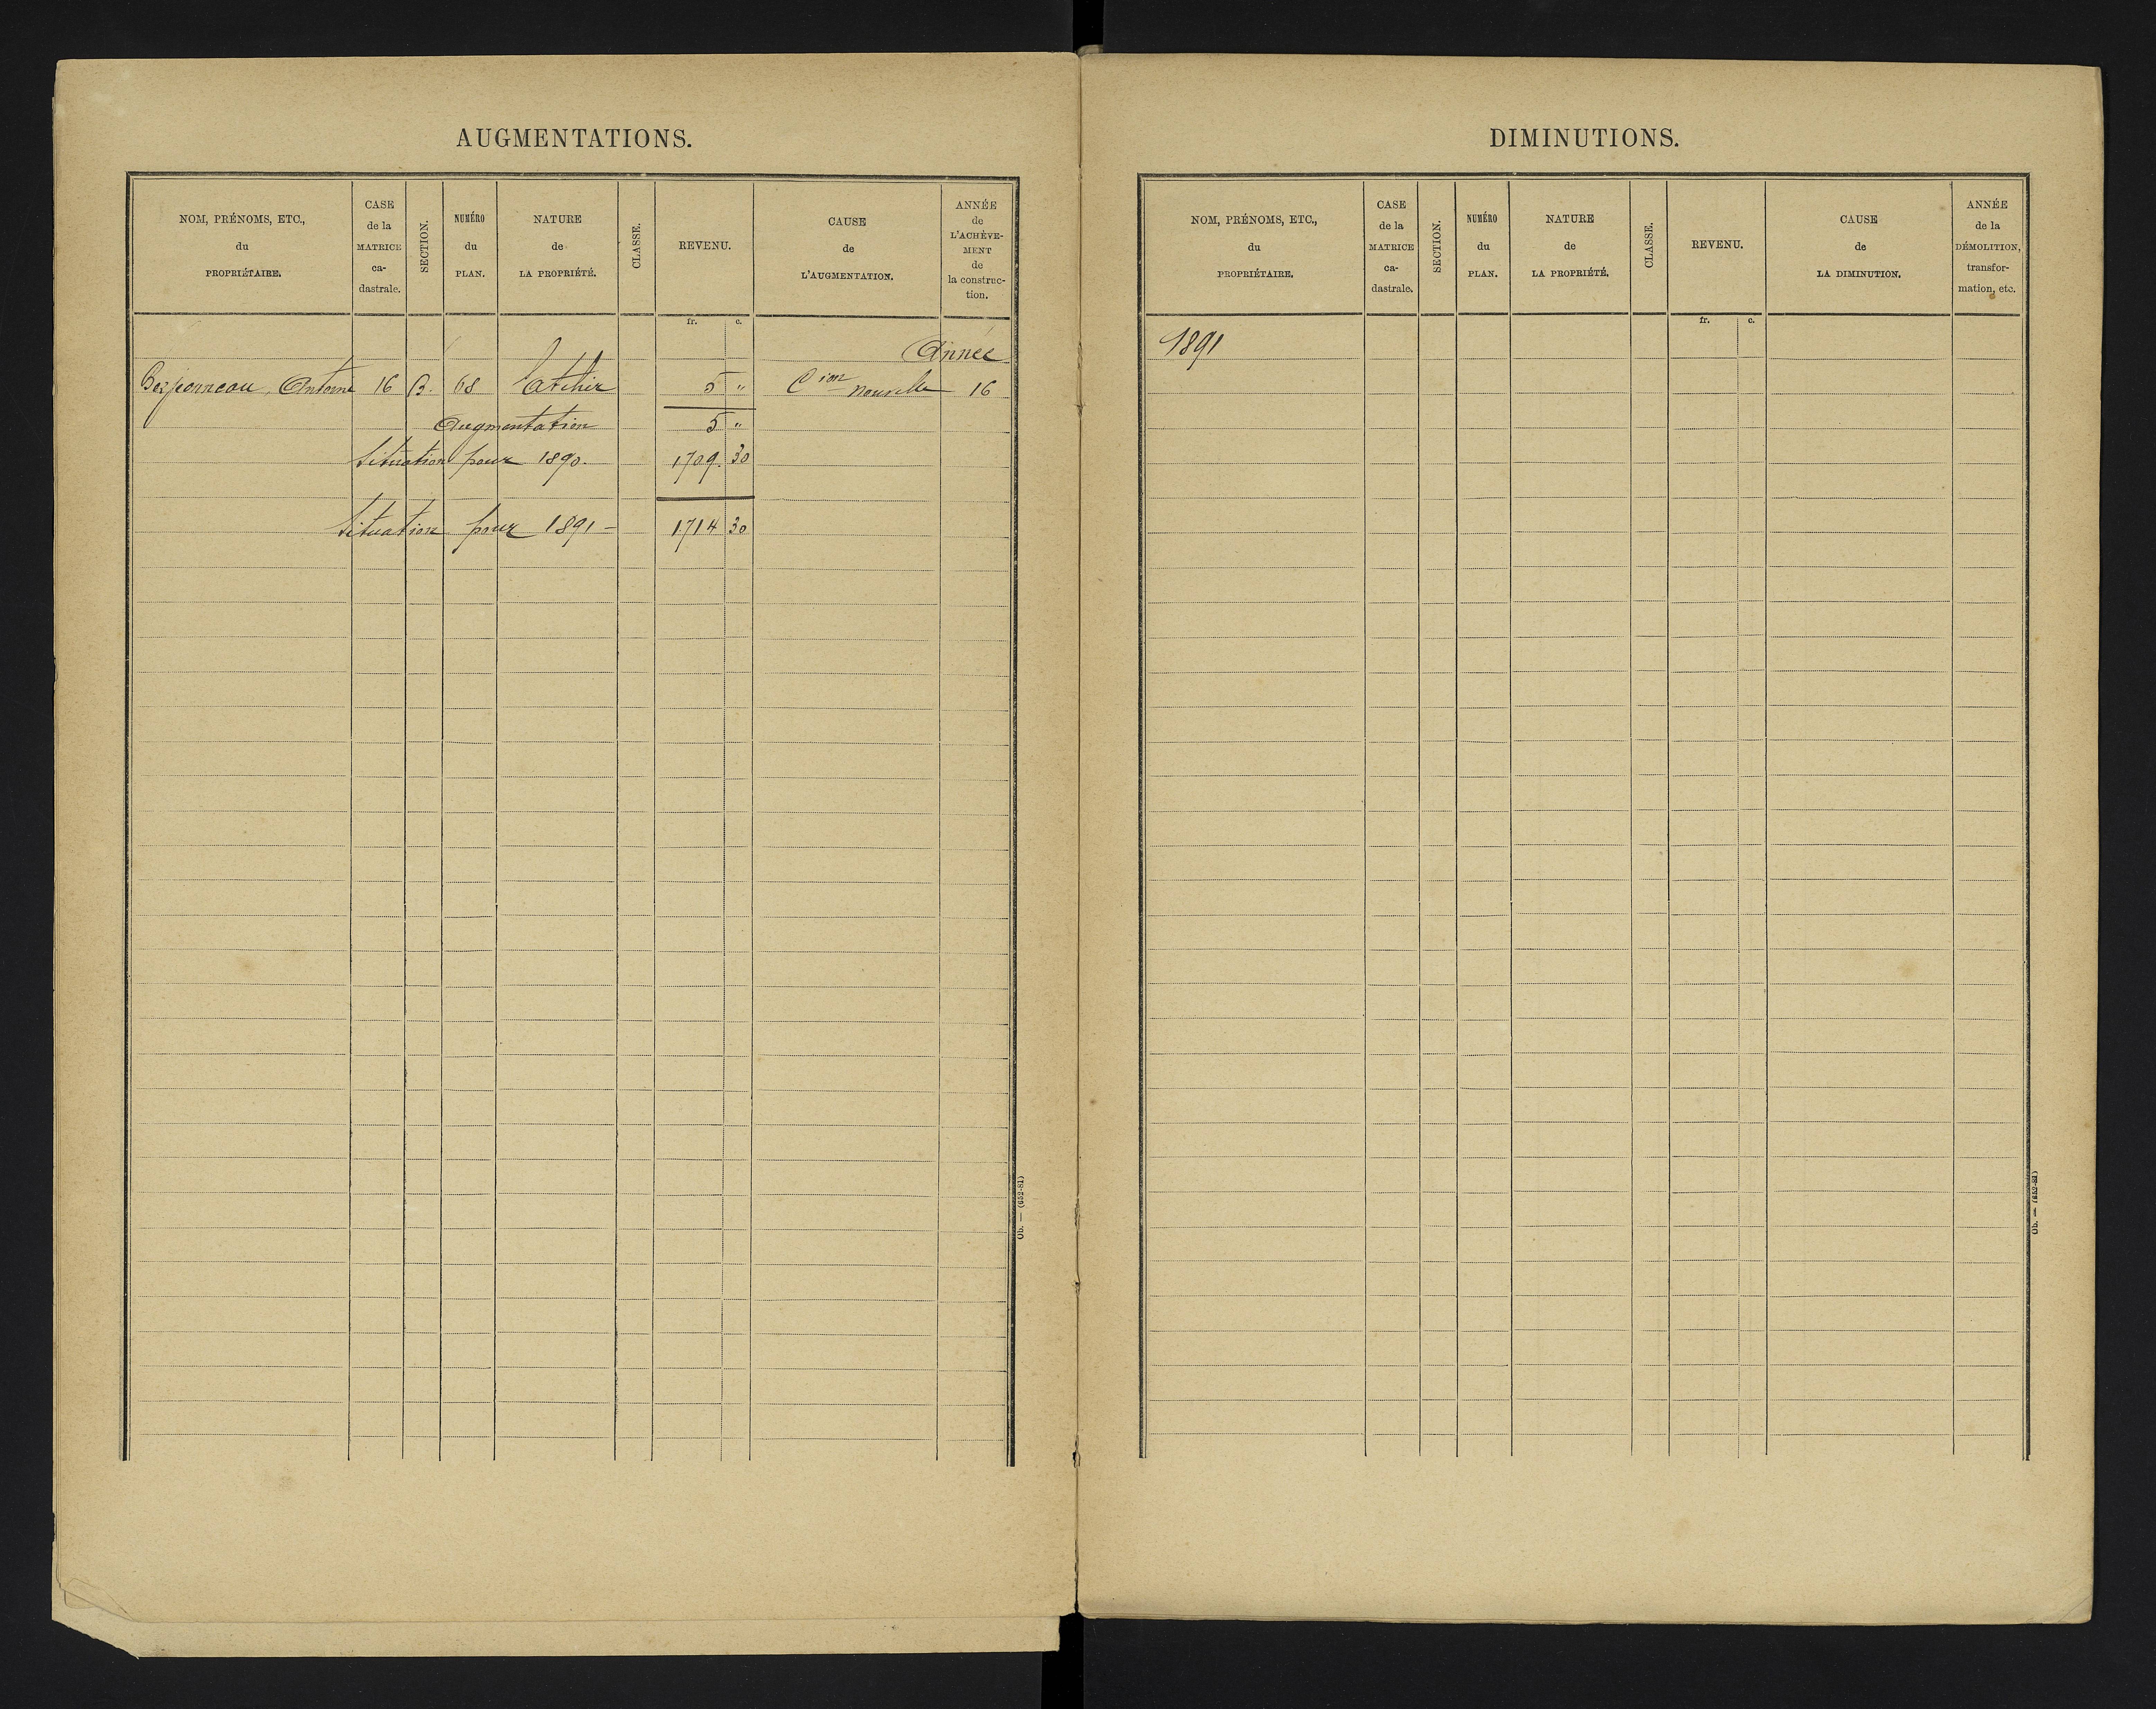 AUGMENTATIONS.
NOM, PRÉNOMS, ETC.,
du
PROPRIÉTAIRE.
CASE
de la
MATRICE
ca-
dastrale.
SECTION.
NUMÉRO
du
PLAN.
NATURE
de
LA PROPRIÉTÉ.
CLASSE.
REVENU.
CAUSE
de
L'AUGMENTATION.
ANNÉE
de
L'ACHÈVE-
MENT
de
la construc-
tion.
fr. c.
Année
Antoine 16 B. 68 atelier 5 " C ion nouvelle 16
Augmentation 5 "
Situation pour 1890. 1709. 30
Situation pour 1891 - 1714 30
Ob. — (652-81)
DIMINUTIONS.
NOM, PRÉNOMS, ETC.,
du
PROPRIÉTAIRE.
CASE
de la
MATRICE
ca-
dastrale.
SECTION.
NUMÉRO
du
PLAN.
NATURE
de
LA PROPRIÉTÉ.
CLASSE.
REVENU.
CAUSE
de
LA DIMINUTION.
ANNÉE
de la
DÉMOLITION,
transfor-
mation, etc.
fr. c.
1891
Ob. — (652-81)